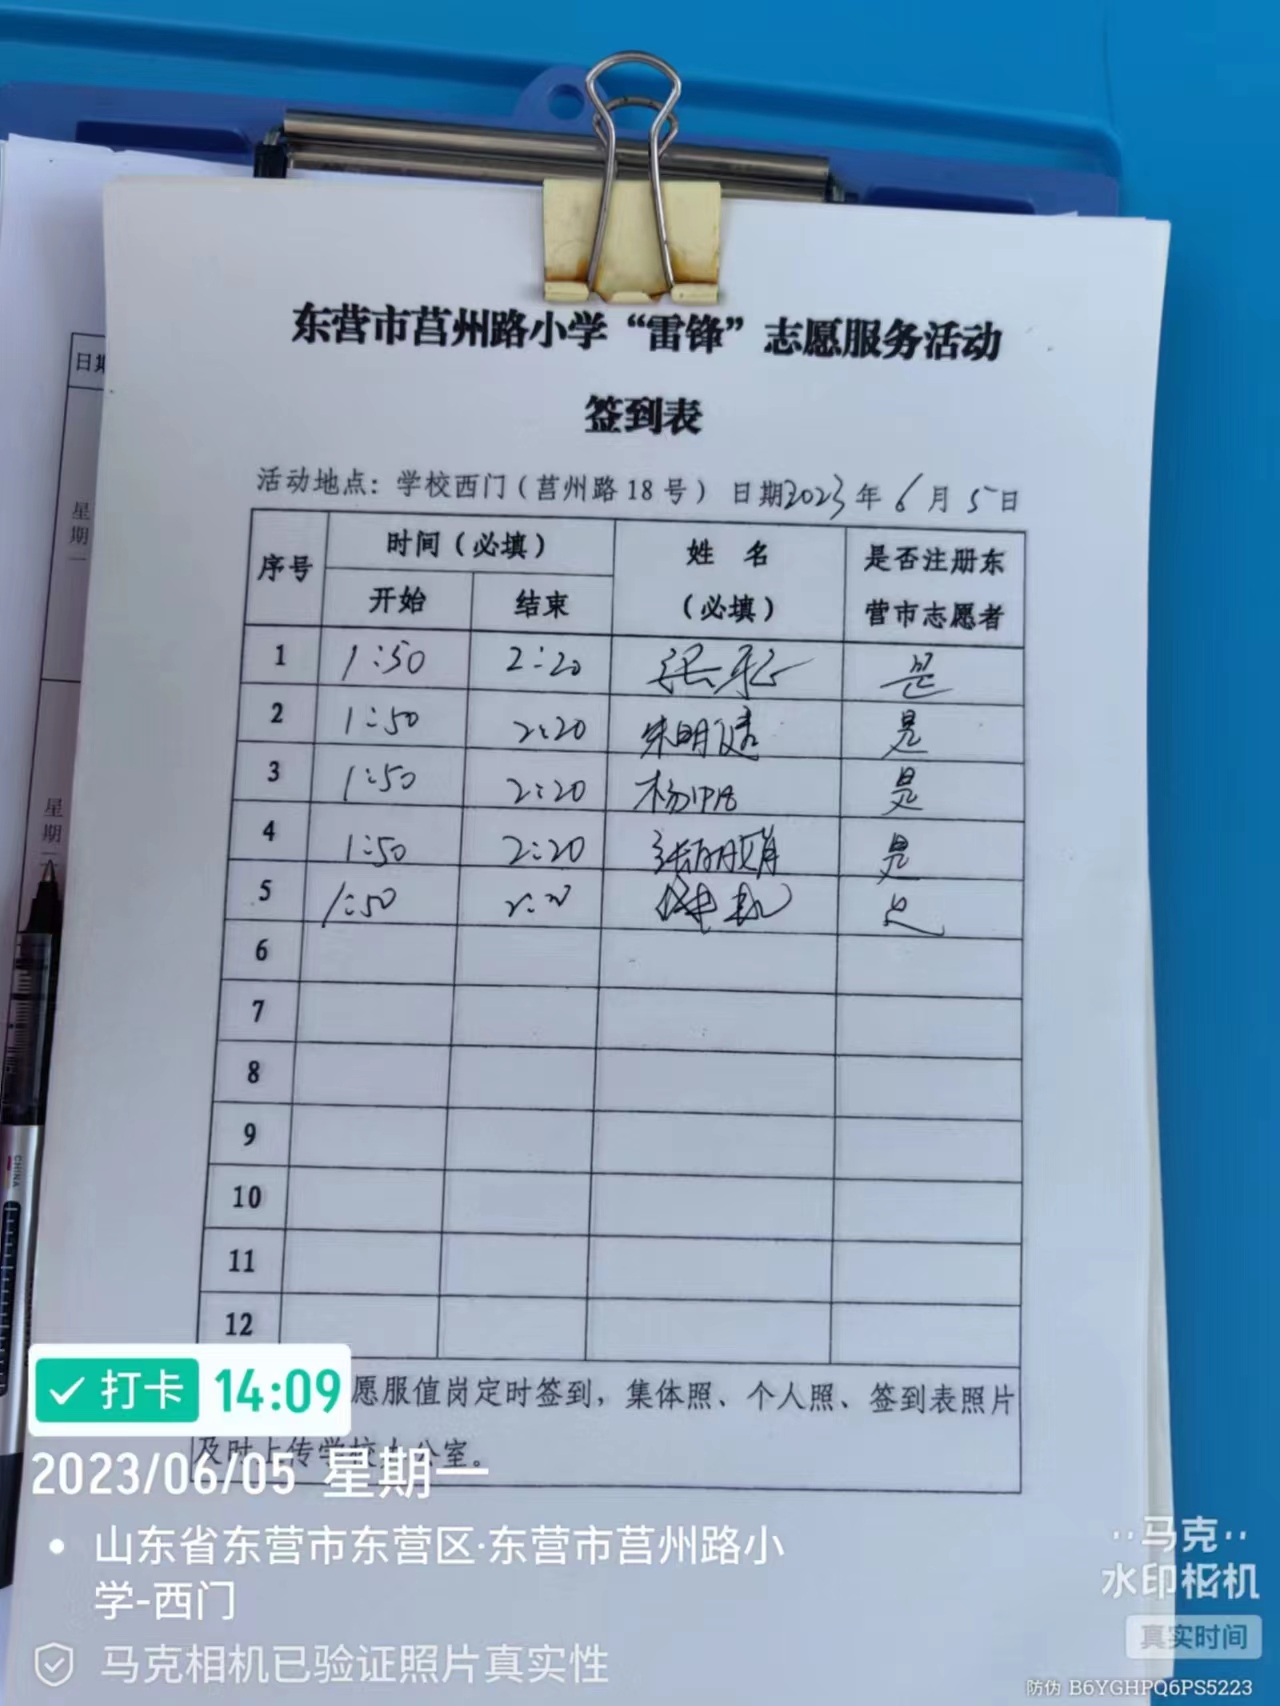 东营市莒州路小学“雷锋”志愿服务活动
签到表
活动地点：学校西门（莒州路18号） 日期2023年6月5日
序号 时间（必填） 姓 名（必填） 是否注册东营市志愿者
开始 结束
1 1:50 2:20 是
2 1:50 2:20 是
3 1:50 2:20 是
4 1:50 2:20 是
5 1:50 2:20 是
6
7
8
9
10
11
12
愿服值岗定时签到，集体照、个人照、签到表照片
及时上传学校办公室。
日期
星期一
星期
CHINA
打卡 14:09
2023/06/05 星期一
山东省东营市东营区·东营市莒州路小
学-西门
马克相机已验证照片真实性
马克
水印相机
真实时间
防伪 B6YGHPQ6PS5223